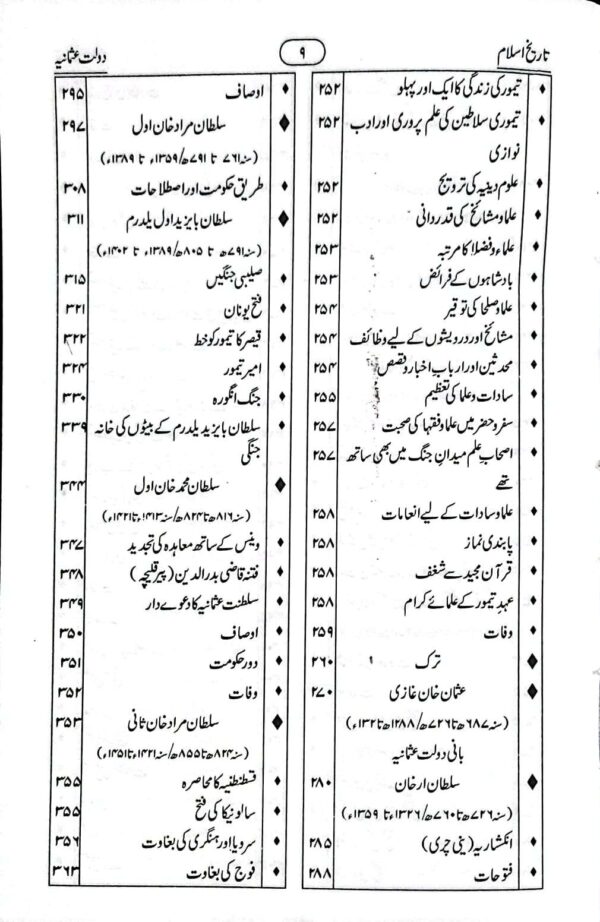 تاریخ اسلام ۹ دولت عثمانیہ
♦ تیمور کی زندگی کا ایک اور پہلو ۲۵۲
♦ تیموری سلاطین کی علم پروری اور ادب ۲۵۲
نوازی
♦ علوم دینیہ کی ترویج ۲۵۲
♦ علما و مشائخ کی قدردانی ۲۵۲
♦ علماء و فضلا کا مرتبہ ۲۵۳
♦ بادشاہوں کے فرائض ۲۵۳
♦ علما و صلحا کی توقیر ۲۵۴
♦ مشائخ اور درویشوں کے لیے وظائف ۲۵۴
♦ محدثین اور ارباب اخبار و قصص ۲۵۴
♦ سادات و علما کی تعظیم ۲۵۵
♦ سفر و حضر میں علما و فقہا کی صحبت ۲۵۷
♦ اصحاب علم میدانِ جنگ میں بھی ساتھ ۲۵۷
تھے
♦ علما و سادات کے لیے انعامات ۲۵۸
♦ پابندی نماز ۲۵۸
♦ قرآن مجید سے شغف ۲۵۸
♦ عہدِ تیمور کے علمائے کرام ۲۵۸
♦ وفات ۲۵۹
♦ ترک ۲۶۰
♦ عثمان خان غازی ۲۷۰
(سنہ ۶۸۷ھ تا ۷۲۶ھ/۱۲۸۸ھ تا ۱۳۲۶ء)
بانی دولت عثمانیہ
♦ سلطان ارخان ۲۸۰
(سنہ ۷۲۶ھ تا ۷۶۰ھ/۱۳۲۶ء تا ۱۳۵۹ء)
♦ انکشاریہ (ینی چری) ۲۸۵
♦ فتوحات ۲۸۸
♦ اوصاف ۲۹۵
♦ سلطان مراد خان اول ۲۹۷
(سنہ ۷۶۱ تا ۷۹۱ھ/۱۳۵۹ء تا ۱۳۸۹ء)
♦ طریق حکومت اور اصطلاحات ۳۰۸
♦ سلطان بایزید اول یلدرم ۳۱۱
(سنہ ۷۹۱ھ تا ۸۰۵ھ/۱۳۸۹ء تا ۱۴۰۲ء)
♦ صلیبی جنگیں ۳۱۵
♦ فتح یونان ۳۲۱
♦ قیصر کا تیمور کو خط ۳۲۲
♦ امیر تیمور ۳۲۴
♦ جنگ انگورہ ۳۳۰
♦ سلطان بایزید یلدرم کے بیٹوں کی خانہ ۳۳۹
جنگی
♦ سلطان محمد خان اول ۳۴۴
(سنہ ۸۱۶ھ تا ۸۲۴ھ/سنہ ۱۴۱۳ء تا ۱۴۲۱ء)
♦ وینس کے ساتھ معاہدہ کی تجدید ۳۴۷
♦ فتنہ قاضی بدرالدین (پیر قلیچہ) ۳۴۸
♦ سلطنت عثمانیہ کا دعوے دار ۳۴۹
♦ اوصاف ۳۵۰
♦ دورِ حکومت ۳۵۱
♦ وفات ۳۵۲
♦ سلطان مراد خان ثانی ۳۵۳
(سنہ ۸۲۴ھ تا ۸۵۵ھ/سنہ ۱۴۲۱ء تا ۱۴۵۱ء)
♦ قسطنطنیہ کا محاصرہ ۳۵۵
♦ سالونیکا کی فتح ۳۵۵
♦ سرویا اور ہنگری کی بغاوت ۳۵۶
♦ فوج کی بغاوت ۳۶۳